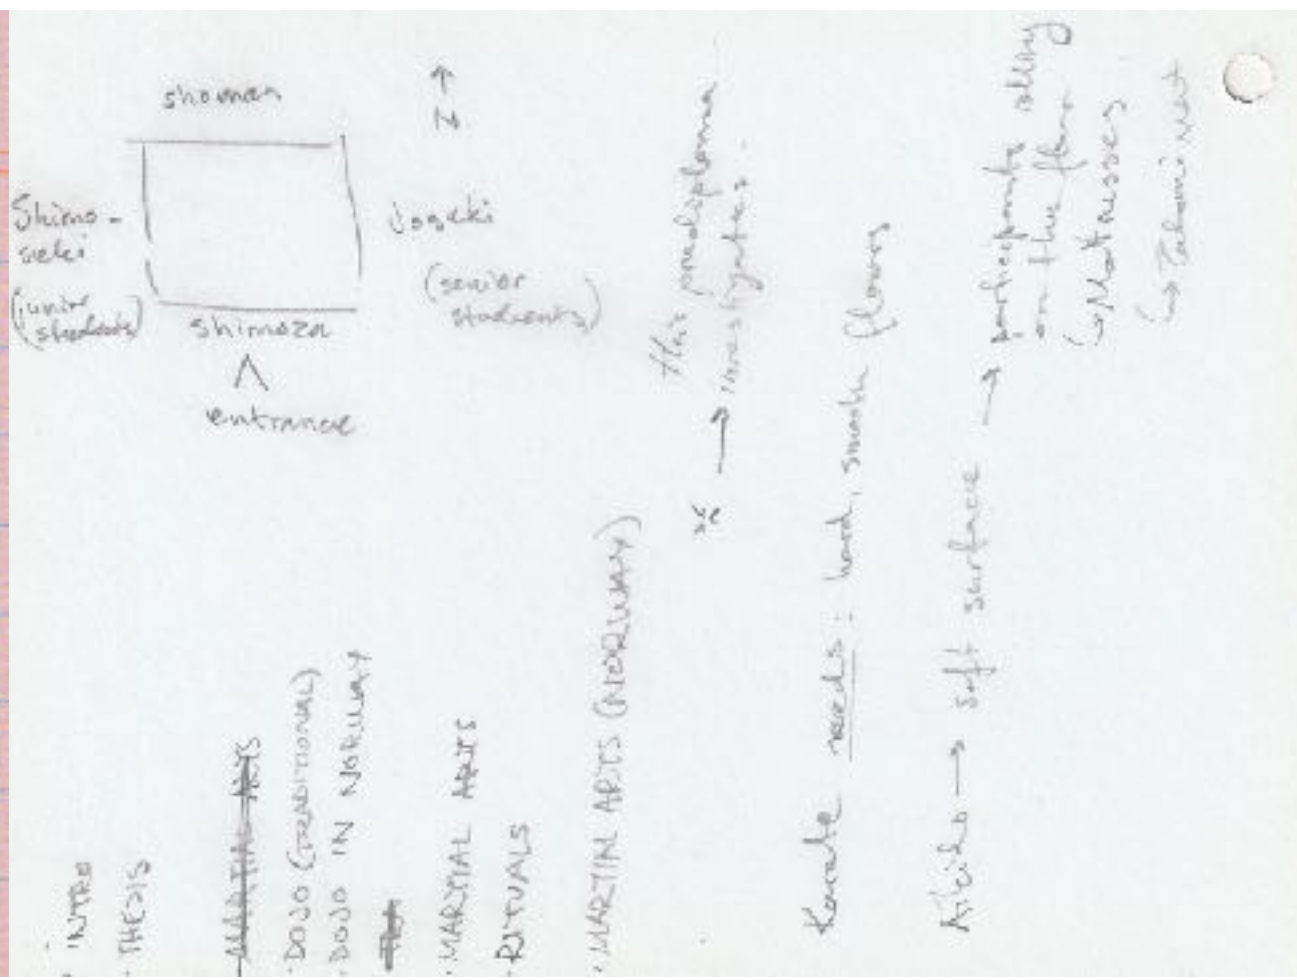 shomen
N
Shimo-
seki
(junior
students)
Joseki
(senior
students)
shimoza
entrance
INTRO
THESIS
MARTIAL ARTS
DOJO (TRADITIONAL)
DOJO IN NORWAY
MARTIAL ARTS
RITUALS
MARTIAL ARTS (NORWAY)
this prediploma
→ investigates.
Karate needs: hard, smooth floors
Aikido → soft surface → participants
on the floor
↳ Mattresses
↳ Tatami mat